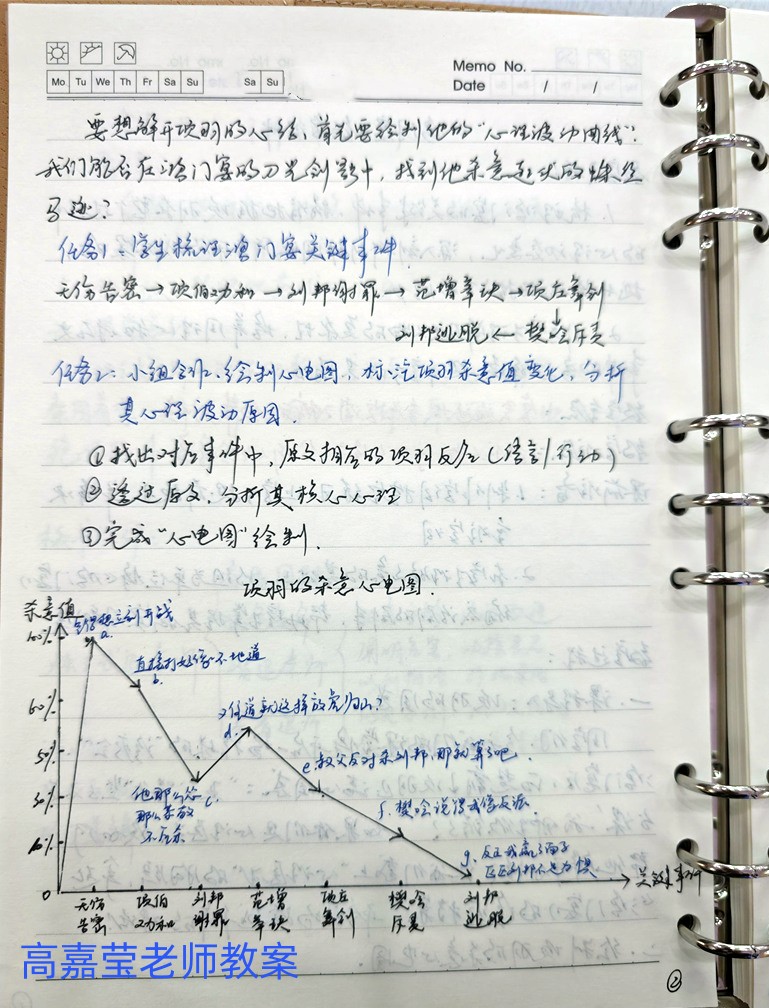 Memo No.
Mo Tu We Th Fr Sa Su Sa Su
Date / /
要想解开项羽的心结，首先要绘制他的“心理波动曲线”.
我们能否在鸿门宴的刀光剑影中，找到他杀意起伏的蛛丝
马迹？
任务1：学生梳理鸿门宴关键事件.
无伤告密→项伯劝和→刘邦谢罪→范增举玦→项庄舞剑
刘邦逃脱←樊哙斥责
任务2：小组合作，绘制心电图，标注项羽杀意值变化，分析
其心理波动原因.
①找出对应事件中，原文相应的项羽反应(语言/行动)
②透过原文，分析其核心心理
③完成“心电图”绘制.
项羽的杀意心电图.
杀意值
立刻开战
100% a.
直接打好像不地道
b.
60%
难道就这样放虎归山？
d.
50%
e.叔父反对杀刘邦，那就算了吧.
30%
他那么怂 c.
那么卑微
不至杀
f.樊哙说得我像反派.
10%
g.反正我赢了面子
区区刘邦不足为惧
0
关键事件
无伤告密
项伯劝和
刘邦谢罪
范增举玦
项庄舞剑
樊哙斥责
刘邦逃脱
高嘉莹老师教案
②